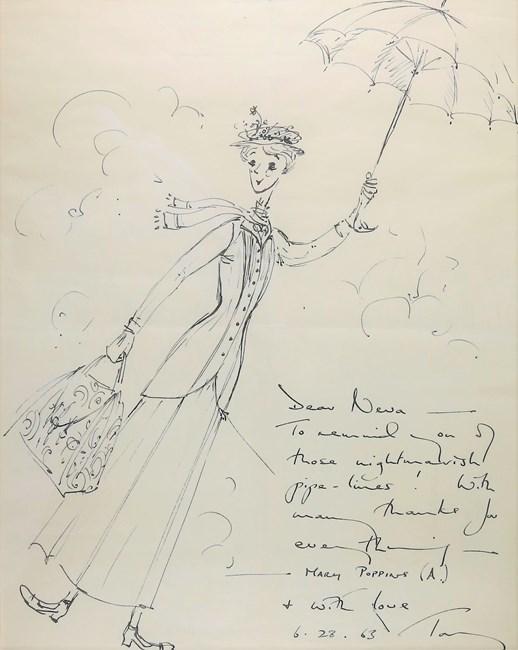 Dear Neva —
To remind you of
those nightmarish
pipe-lines! With
many thanks for
everything —
— MARY POPPINS (A.)
& with love
6.28.63 Tony